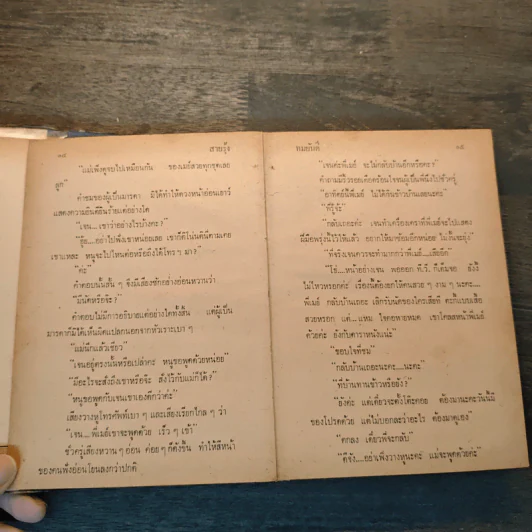 ๑๘ สายรุ้ง
"แม่เพิ่งดูจบไปเหมือนกัน ของเมย์สวยทุกชุดเลย
ลูก"
คำชมของผู้เป็นมารดา มิได้ทำให้ดวงหน้าอ่อนเยาว์
แสดงความยินดียินร้ายแต่อย่างใด
"เจน... เขาว่าอย่างไรบ้างคะ?"
"อุ๊ย...อย่าไปพึ่งเขาหน่อยเลย เขาก็ดีโน่นตินี่ตามเคย
เขาแหละ หนูจะไปไหนต่อหรือถึงได้โทร ๆ มา?"
"ค่ะ"
คำตอบนั้นสั้น ๆ จึงมีเสียงซักอย่างอ่อนหวานว่า
"มีนัดหรือจ๊ะ?"
คำตอบไม่มีการอธิบายแต่อย่างใดทั้งสิ้น แต่ผู้เป็น
มารดาก็มิได้เห็นผิดแปลกนอกจากหัวเราะเบา ๆ
"แม่นึกแล้วเชียว"
"เจนอยู่ตรงนั้นหรือเปล่าคะ หนูขอพูดด้วยหน่อย"
"มีอะไรจะสั่งถึงเขาหรือจ๊ะ สั่งไว้กับแม่ก็ได้?"
"หนูขอพูดกับเจนเขาเองดีกว่าค่ะ"
เสียงวางหูโทรศัพท์เบา ๆ และเสียงเรียกไกล ๆ ว่า
"เจน... พี่เมย์เขาจะพูดด้วย เร็ว ๆ เข้า"
ชั่วครู่เสียงหวาน ๆ อ่อน ค่อย ๆ ก็ดังขึ้น ทำให้สีหน้า
ของคนฟังอ่อนโยนลงกว่าปกติ
ทมยันตี ๑๙
"เจนค่ะพี่เมย์ จะไม่กลับบ้านอีกหรือคะ?"
คำถามมีริ้วรอยเดือดร้อน เจนผู้เป็นพี่นิ่งไปชั่วครู่
"อาทิตย์นี้พี่เมย์ ไม่ได้กินข้าวบ้านเลยนะคะ"
"พี่รู้จ้ะ"
"กลับเถอะค่ะ เจนทำเครื่องเคราที่พี่เมย์จะไปแสดง
ฝีมือพรุ่งนี้ไว้ให้แล้ว อยากให้มาซ้อมอีกหน่อย ไม่งั้นจะยุ่ง"
"ที่จริงเจนควรจะทำมากกว่าพี่เมย์...เสียอีก"
"โธ่...หน้าอย่างเจน พอออก ที.วี. ก็เต็มจอ ยังงี้
ไม่ไหวหรอกค่ะ เรื่องนี้ต้องยกให้คนสวย ๆ งาม ๆ นะคะ...
พี่เมย์ กลับบ้านเถอะ เลิกรับนัดของใครเสียที คะก็แบบเสื้อ
สวยหรอก แต่...แหม ใจคอหายหมด เขาโคลสหน้าพี่เมย์
ด้วยค่ะ ยังกับดาราหนังแน่ะ"
"ขอบใจที่ชม"
"กลับบ้านเถอะนะคะ...นะคะ"
"ที่บ้านทานข้าวหรือยัง?"
"ยังค่ะ แต่เดี๋ยวจะตั้งโต๊ะคอย ต้องมานะคะวันนี้มี
ของโปรดด้วย แต่ไม่บอกละว่าอะไร ต้องมาดูเอง"
"ตกลง เดี๋ยวพี่จะกลับ"
"ดีจัง...อย่าเพิ่งวางหูนะคะ แม่จะพูดด้วยค่ะ"